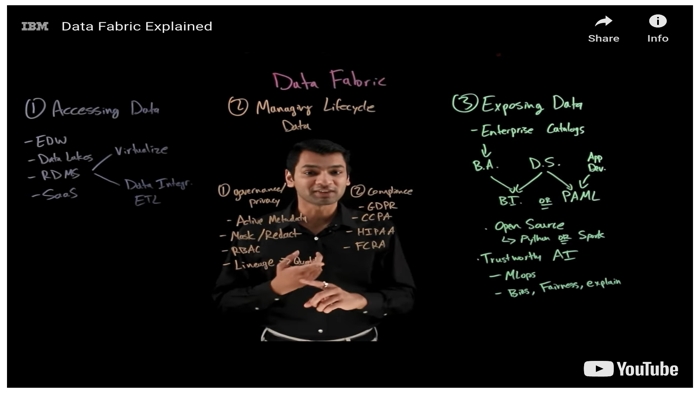 IBM
Data Fabric Explained
Share
Info
Data Fabric
① Accessing Data
- EDW
- Data Lakes
- RDMS
- SaaS
Virtualize
Data Integr.
ETL
② Managing Lifecycle
Data
① governance/
privacy
- Active Metadata
- Mask/Redact
- RBAC
- Lineage → Quality
② Compliance
- GDPR
- CCPA
- HIPAA
- FCRA
③ Exposing Data
- Enterprise Catalogs
B.A.
D.S.
App
Dev.
BI OR PAML
• Open Source
↳ Python OR Spark
• Trustworthy AI
- MLops
- Bias, Fairness, explain
YouTube